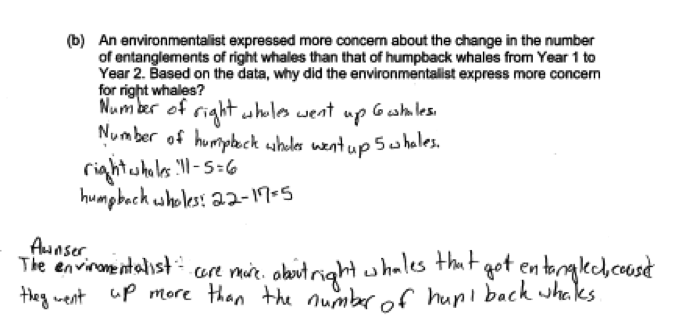 (b) An environmentalist expressed more concern about the change in the number
of entanglements of right whales than that of humpback whales from Year 1 to
Year 2. Based on the data, why did the environmentalist express more concern
for right whales?
Number of right whales went up 6 whales.
Number of humpback whales went up 5 whales.
right whales: 11-5=6
humpback whales: 22-17=5
Awnser
The environmentalist care more. about right whales that got entangled, cause
they went up more than the number of hup back whales